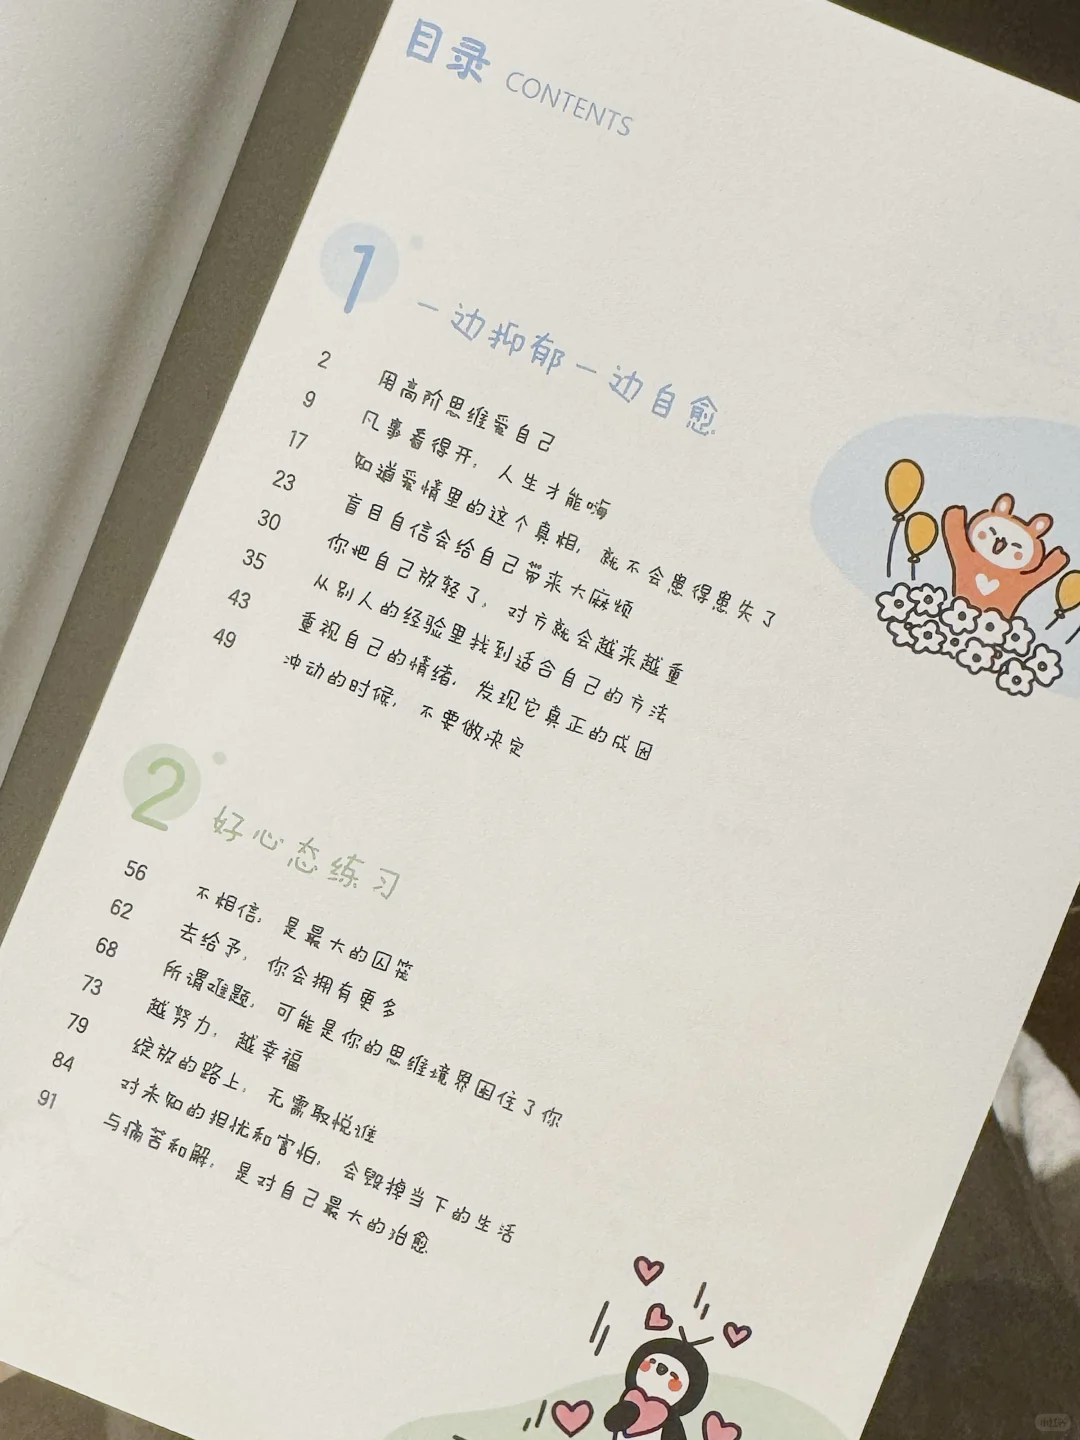 目录 CONTENTS
1 一边抑郁一边自愈
2 用高阶思维爱自己
9 凡事看得开，人生才能嗨
17 知道爱情里的这个真相，就不会患得患失了
23 盲目自信会给自己带来大麻烦
30 你把自己放轻了，对方就会越来越重
35 从别人的经验里找到适合自己的方法
43 重视自己的情绪，发现它真正的成因
49 冲动的时候，不要做决定
2 好心态练习
56 不相信，是最大的囚笼
62 去给予，你会拥有更多
68 所谓难题，可能是你的思维境界困住了你
73 越努力，越幸福
79 绽放的路上，无需取悦谁
84 对未知的担忧和害怕，会毁掉当下的生活
91 与痛苦和解，是对自己最大的治愈
小红书